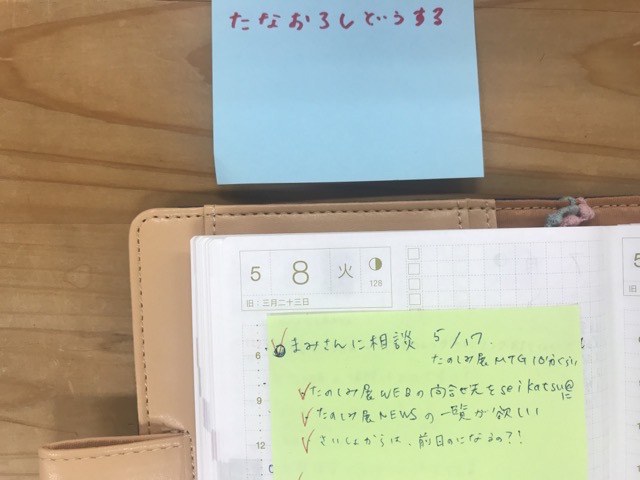 たなおろしどうする
5 8 火
128
旧：三月二十三日
まみさんに相談 5/17.
たのしみ展MTG 10分くらい
6
たのしみ展WEBの問合せ先をseikatsu@に
たのしみ展NEWSの一覧が欲しい
9
さいしょからは、前日のになるの?!
12
5